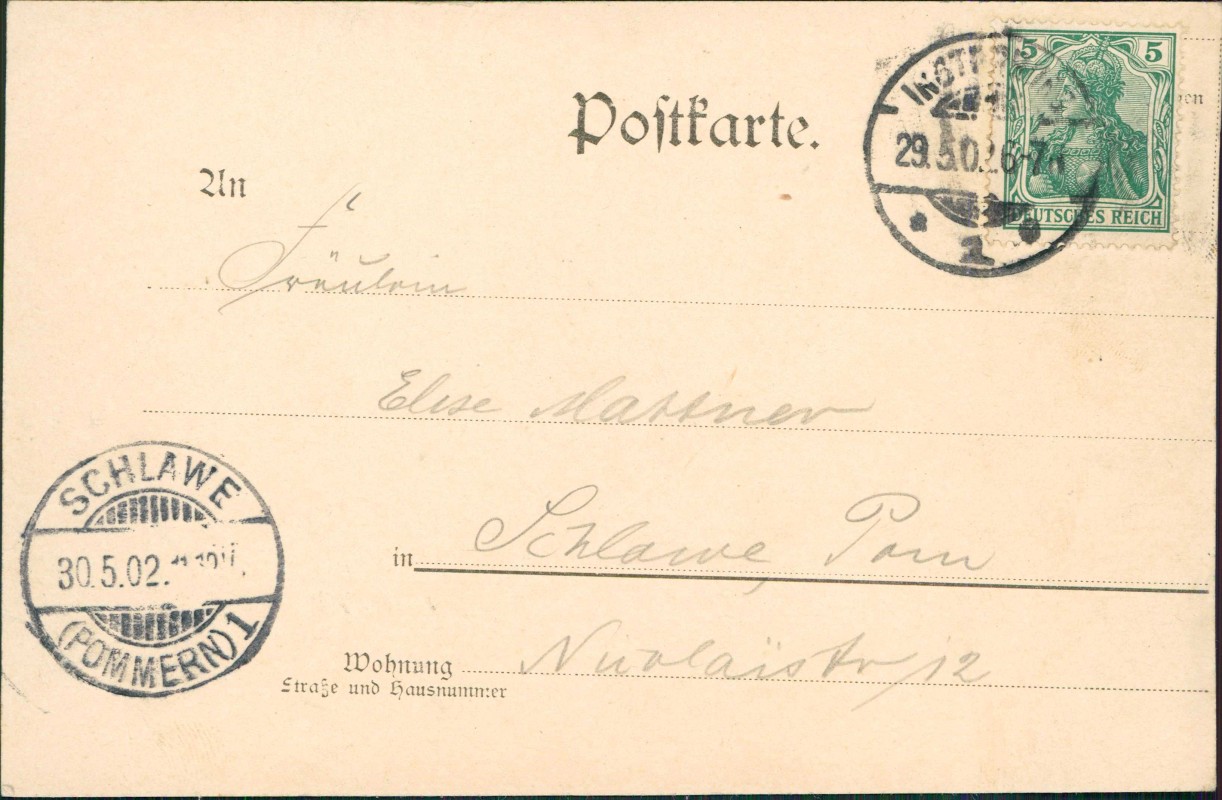 Postkarte.
5 5
DEUTSCHES REICH
29.5.02.6-7
1
An
Fräulein
Elise Mattner
in Schlawe, Pom
Wohnung Nicolaistr 12
Straße und Hausnummer
SCHLAWE
30.5.02.
(POMMERN) 1